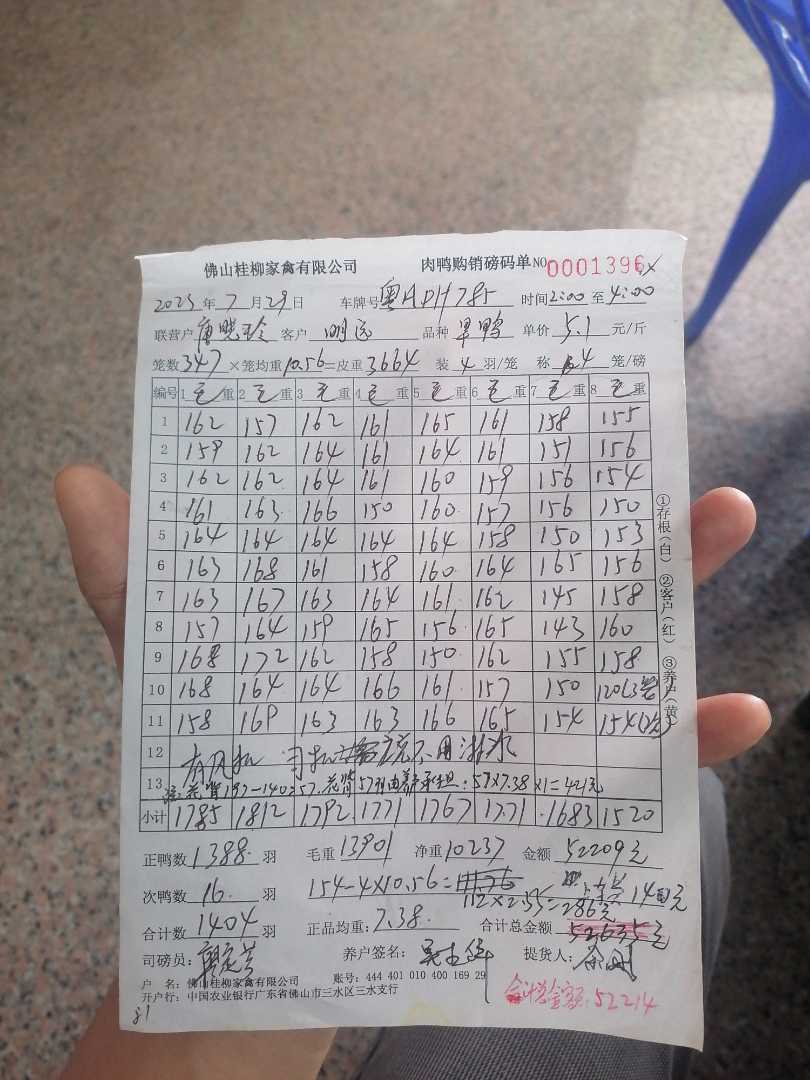 佛山桂柳家禽有限公司 肉鸭购销磅码单 NO 0001396
2025年7月29日 车牌号 粤A DH785 时间2:00至4:00
联营户 客户 明远 品种 单价 5.1 元/斤
笼数347×笼均重10.56=皮重3664 装4羽/笼 称4笼/磅
编号 1毛重 2毛重 3毛重 4毛重 5毛重 6毛重 7毛重 8毛重
1 162 157 162 161 165 161 158 155
2 159 162 164 161 164 161 151 156
3 162 162 164 161 160 159 156 154
4 161 163 166 150 160 157 156 150
5 164 164 164 164 164 158 150 153
6 163 168 161 158 160 164 165 156
7 163 167 163 164 161 162 145 158
8 157 164 159 165 156 165 143 160
9 168 172 162 158 150 162 155 158
10 168 164 164 166 161 157 150 120(3笼)
11 158 169 163 163 166 165 154 154(次)
12 有风机 司机 不用淋水
13 注:花背197-140=57.花背57羽由养户承担:57×7.38×1=421元
小计 1785 1812 1792 1771 1767 1771 1683 1520
正鸭数1388羽 毛重13901 净重10237 金额52209元
次鸭数16羽 154-4×10.56= 112×2.55=286元 140元
合计数1404羽 正品均重:7.38 合计总金额 52635元
司磅员: 养户签名: 提货人:
户 名:佛山桂柳家禽有限公司 账号:444 401 010 400 169 29
开户行:中国农业银行广东省佛山市三水区三水支行
合计总金额:52214
①存根(白) ②客户(红) ③养户(黄)